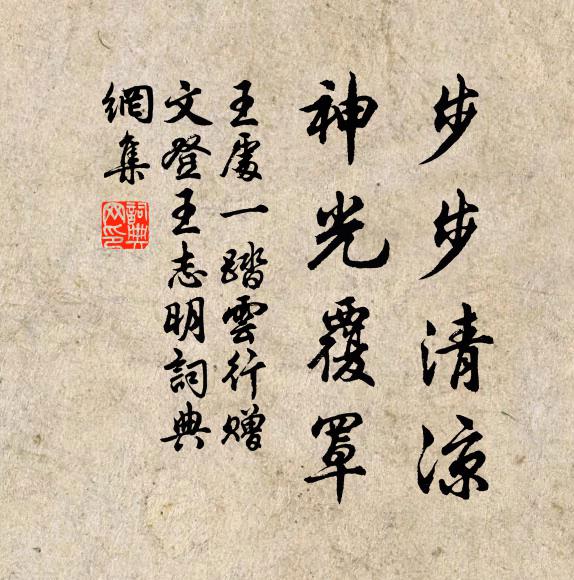 步步清涼
神光覆罩
王處一踏雲行贈
文登王志明詞典
網集
詞典網印